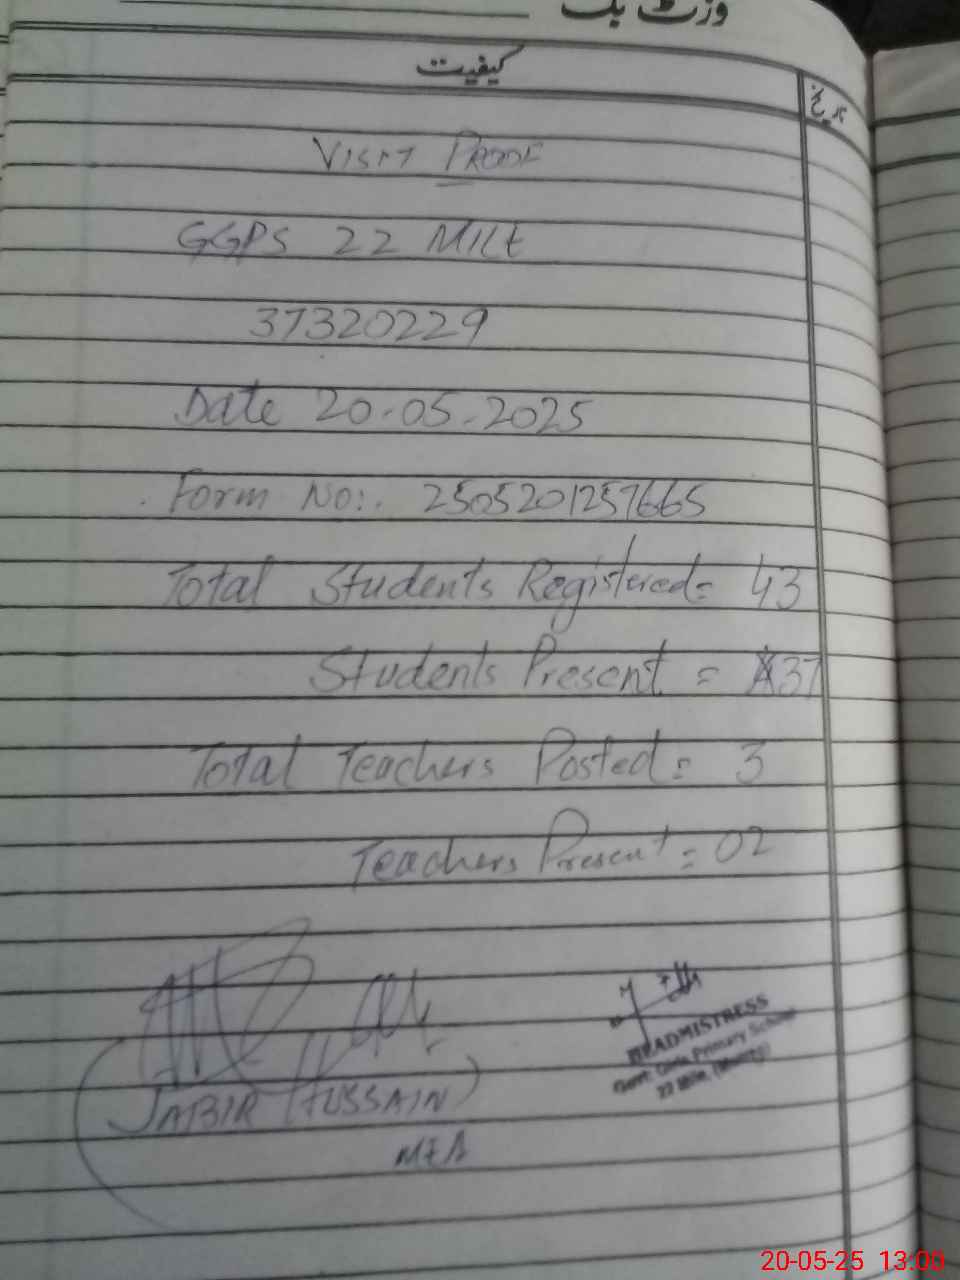 وزٹ بک
کیفیت
تاریخ
VISIT PROOF
GGPS 22 MILE
37320229
Date 20-05-2025
Form No:. 2505201257665
Total Students Registered= 43
Students Present = 37
Total Teachers Posted = 3
Teachers Present = 02
HEADMISTRESS
Govt: Girls Primary School
22 Mile, (Murree)
(JABIR HUSSAIN)
MEA
20-05-25 13:00